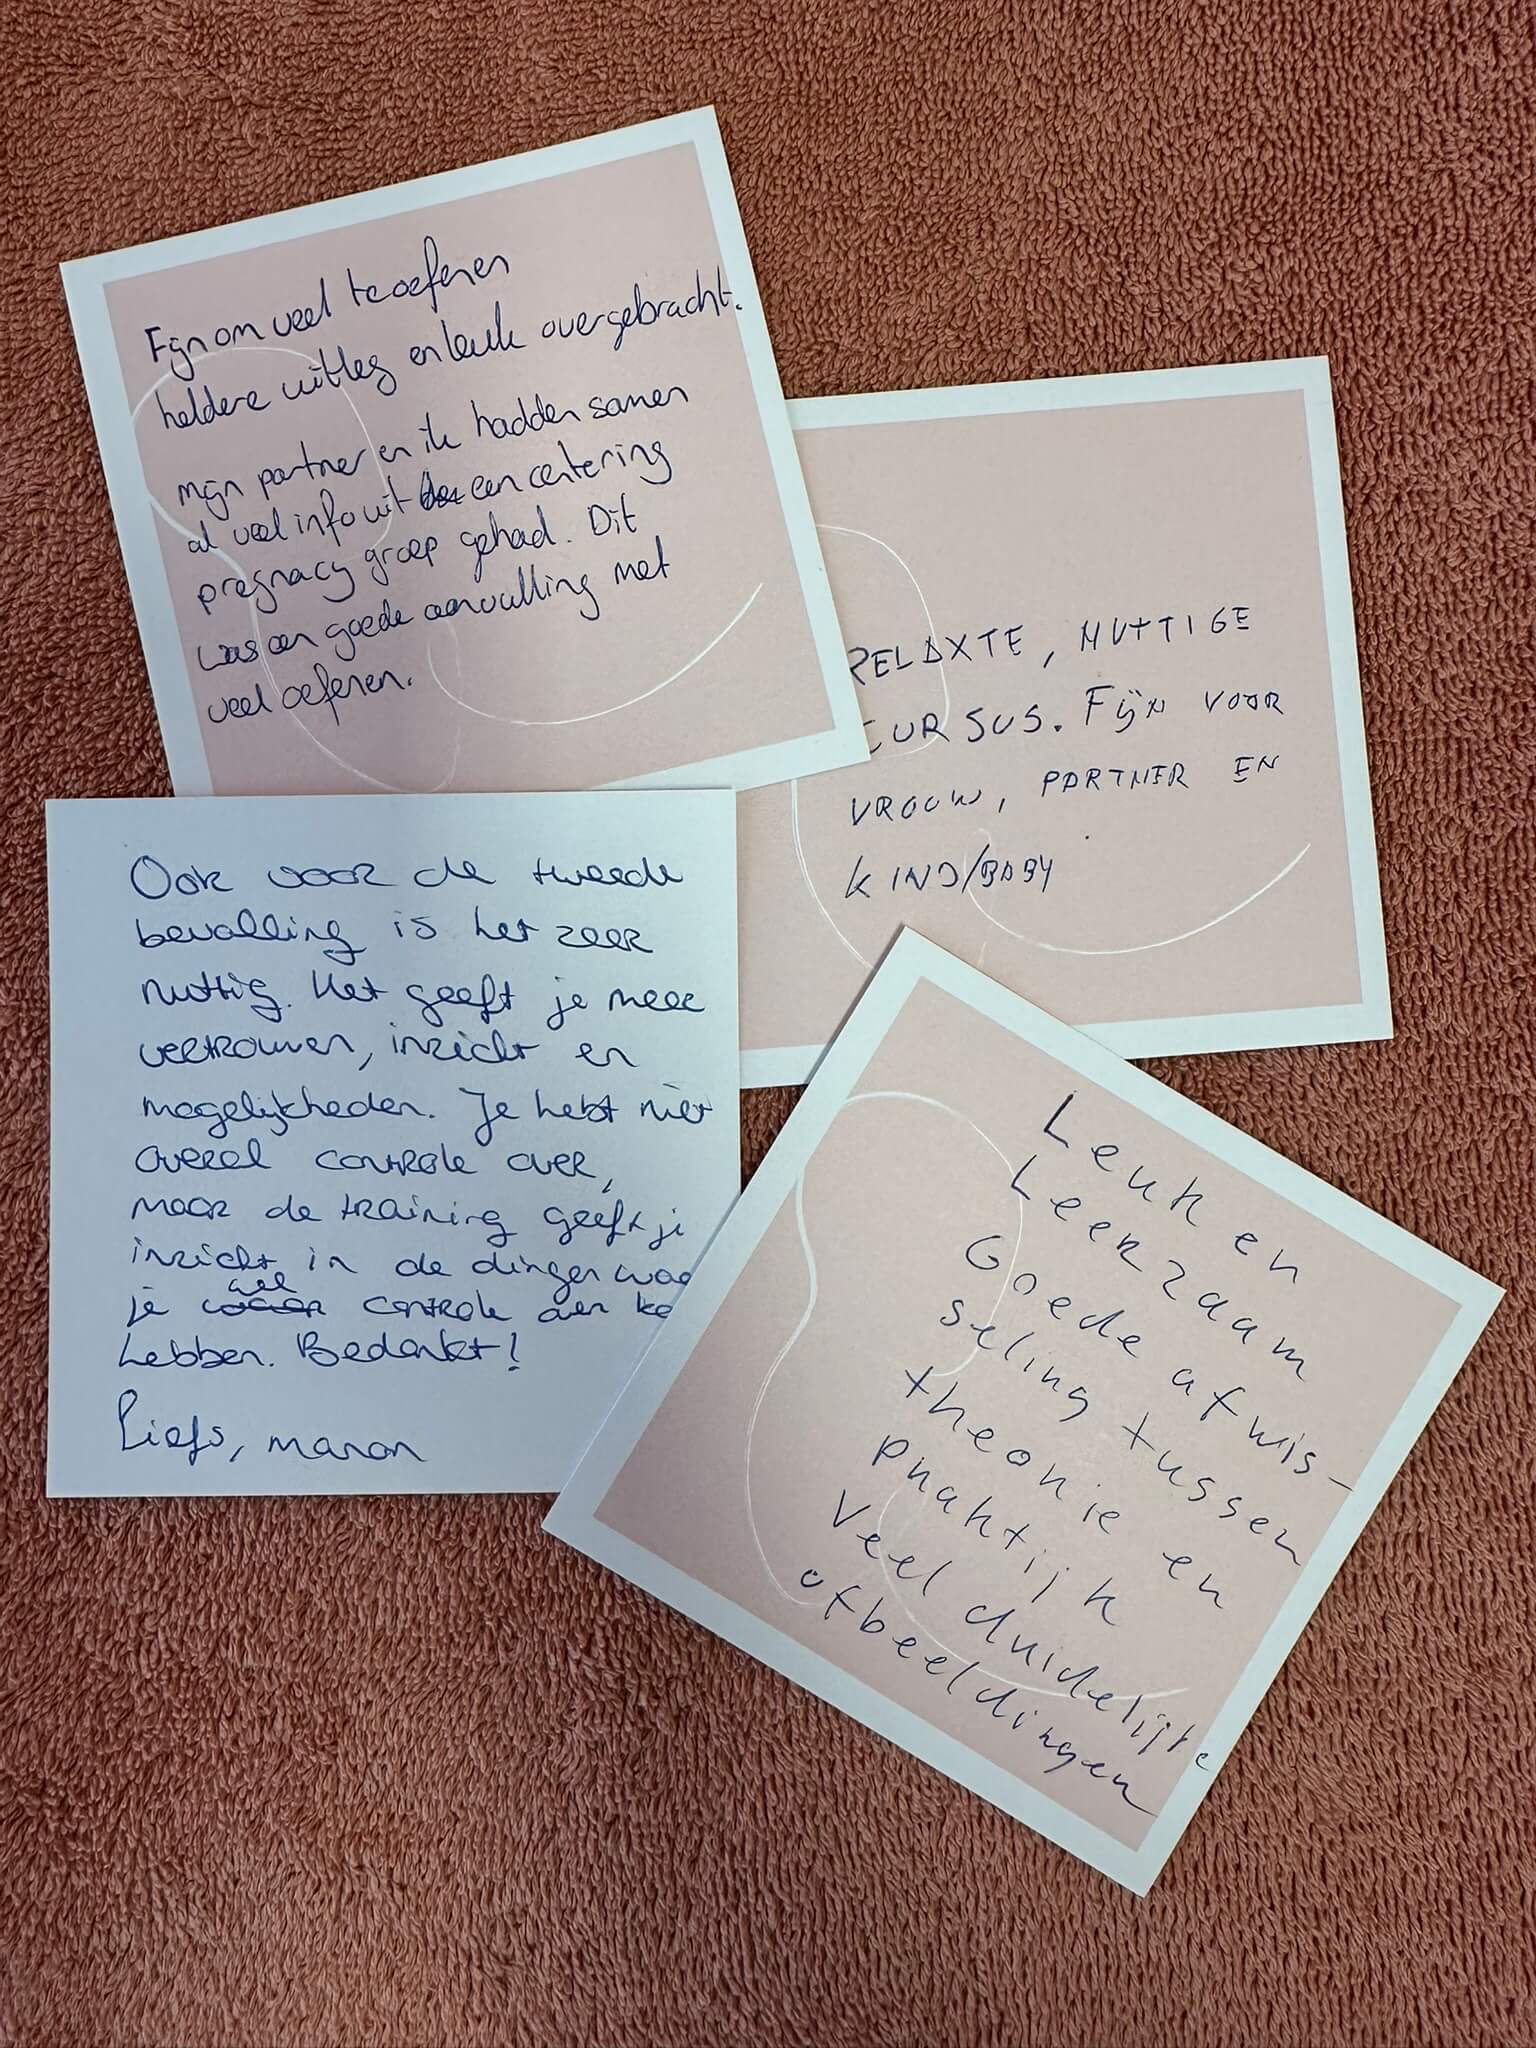 Fijn om veel te oefenen
heldere uitleg en leuk overgebracht.
mijn partner en ik hadden samen
al veel info uit een centering
pregnacy groep gehad. Dit
was een goede aanvulling met
veel oefenen.
RELAXTE, NUTTIGE
CURSUS. Fijn VOOR
VROUW, PARTNER EN
KIND/BABY
Ook voor de tweede
bevalling is het zeer
nuttig. Het geeft je meer
vertrouwen, inzicht en
mogelijkheden. Je hebt niet
overal controle over,
maar de training geeft je
inzicht in de dingen waa
je wel controle over ka
hebben. Bedankt!
Liefs, manon
Leuk en
Leerzaam
Goede afwis-
seling tussen
theorie en
praktijk
Veel duidelijke
afbeeldingen